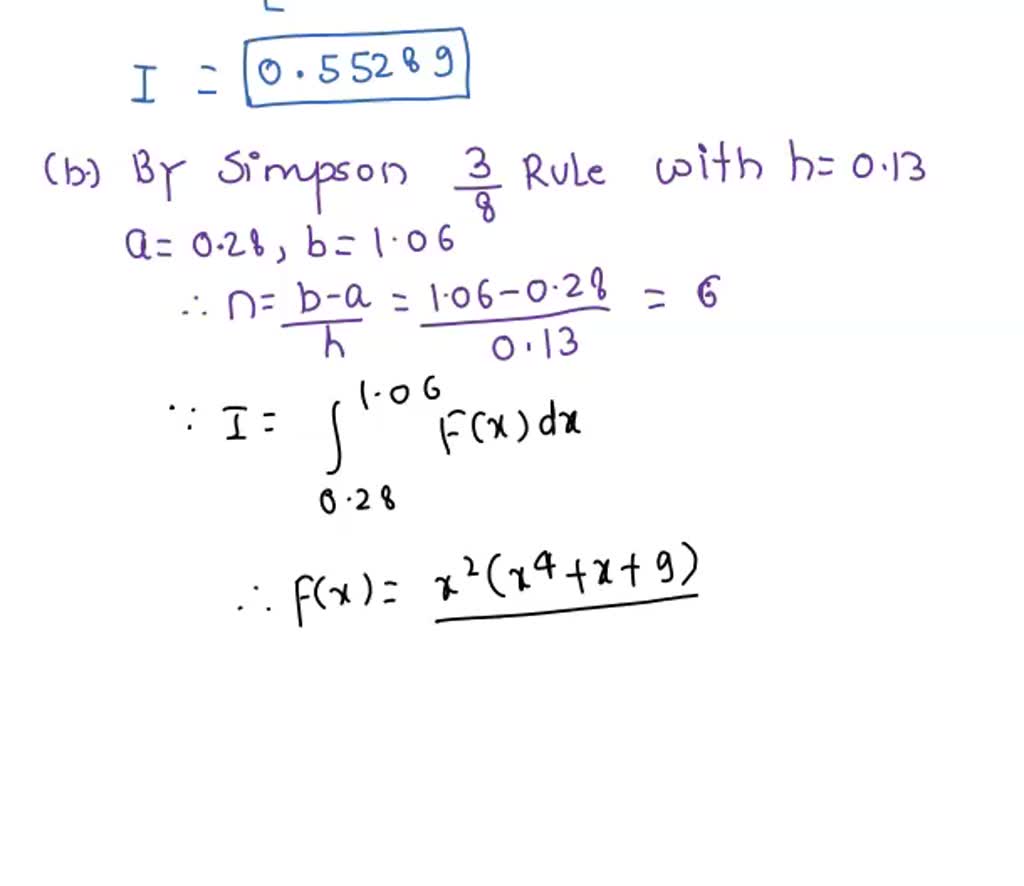 I = 0.55289
(b.) By Simpson 3/8 Rule with h= 0.13
a= 0.28, b= 1.06
∴ n= b-a/h = 1.06-0.28/0.13 = 6
∵ I= ∫ 1.06 0.28 F(x) dx
∴ F(x)= x²(x⁴+x+9)